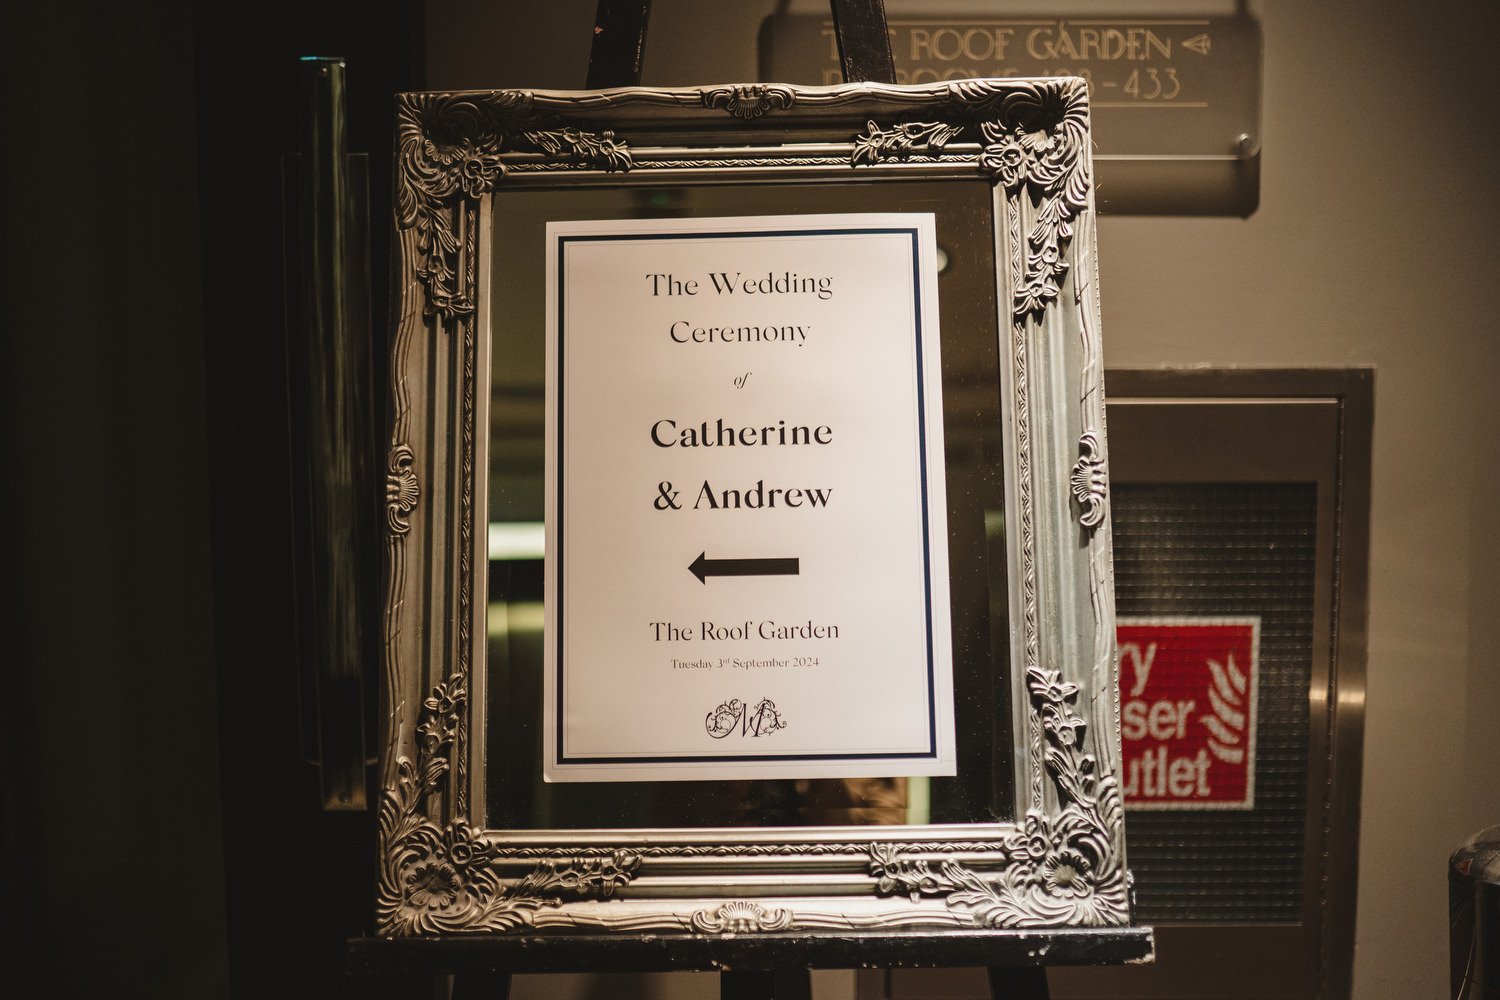 THE ROOF GARDEN
433
The Wedding
Ceremony
of
Catherine
& Andrew
The Roof Garden
Tuesday 3rd September 2024
M